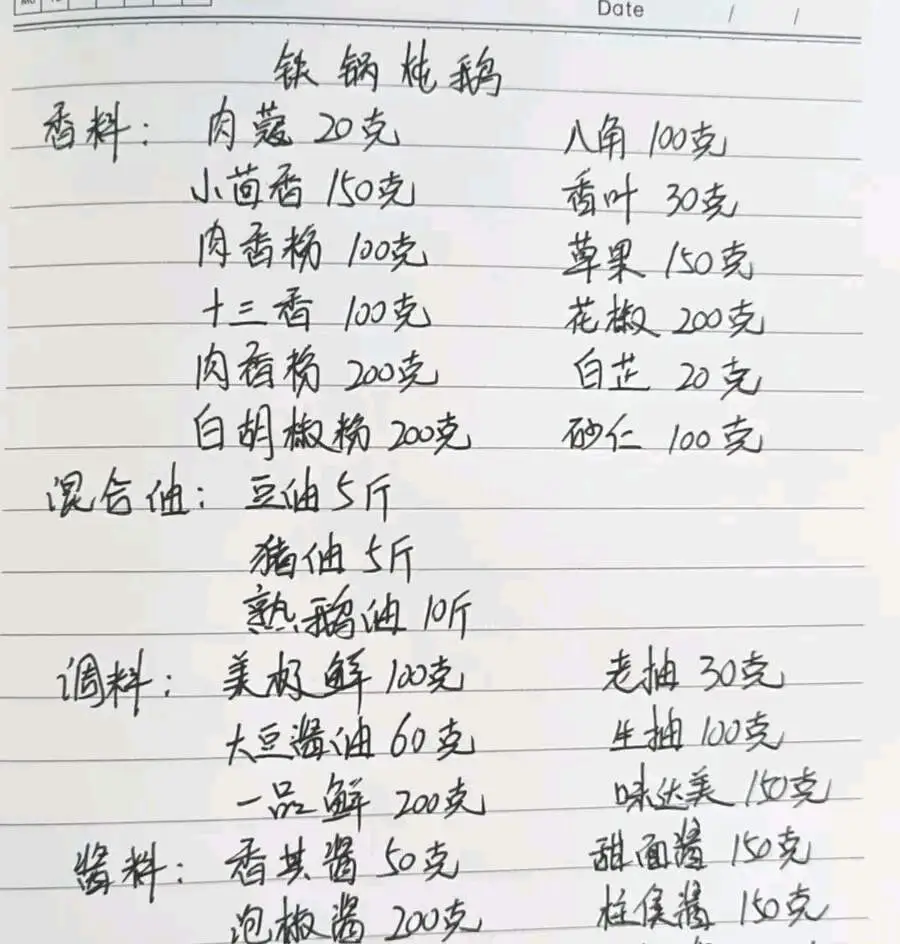 Date / /
铁锅炖鹅
香料: 肉蔻 20克 八角 100克
小茴香 150克 香叶 30克
肉香粉 100克 草果 150克
十三香 100克 花椒 200克
肉香粉 200克 白芷 20克
白胡椒粉 200克 砂仁 100克
混合油: 豆油 5斤
猪油 5斤
熟鹅油 10斤
调料: 美极鲜 100克 老抽 30克
大豆酱油 60克 生抽 100克
一品鲜 200克 味达美 150克
酱料: 香其酱 50克 甜面酱 150克
泡椒酱 200克 柱侯酱 150克